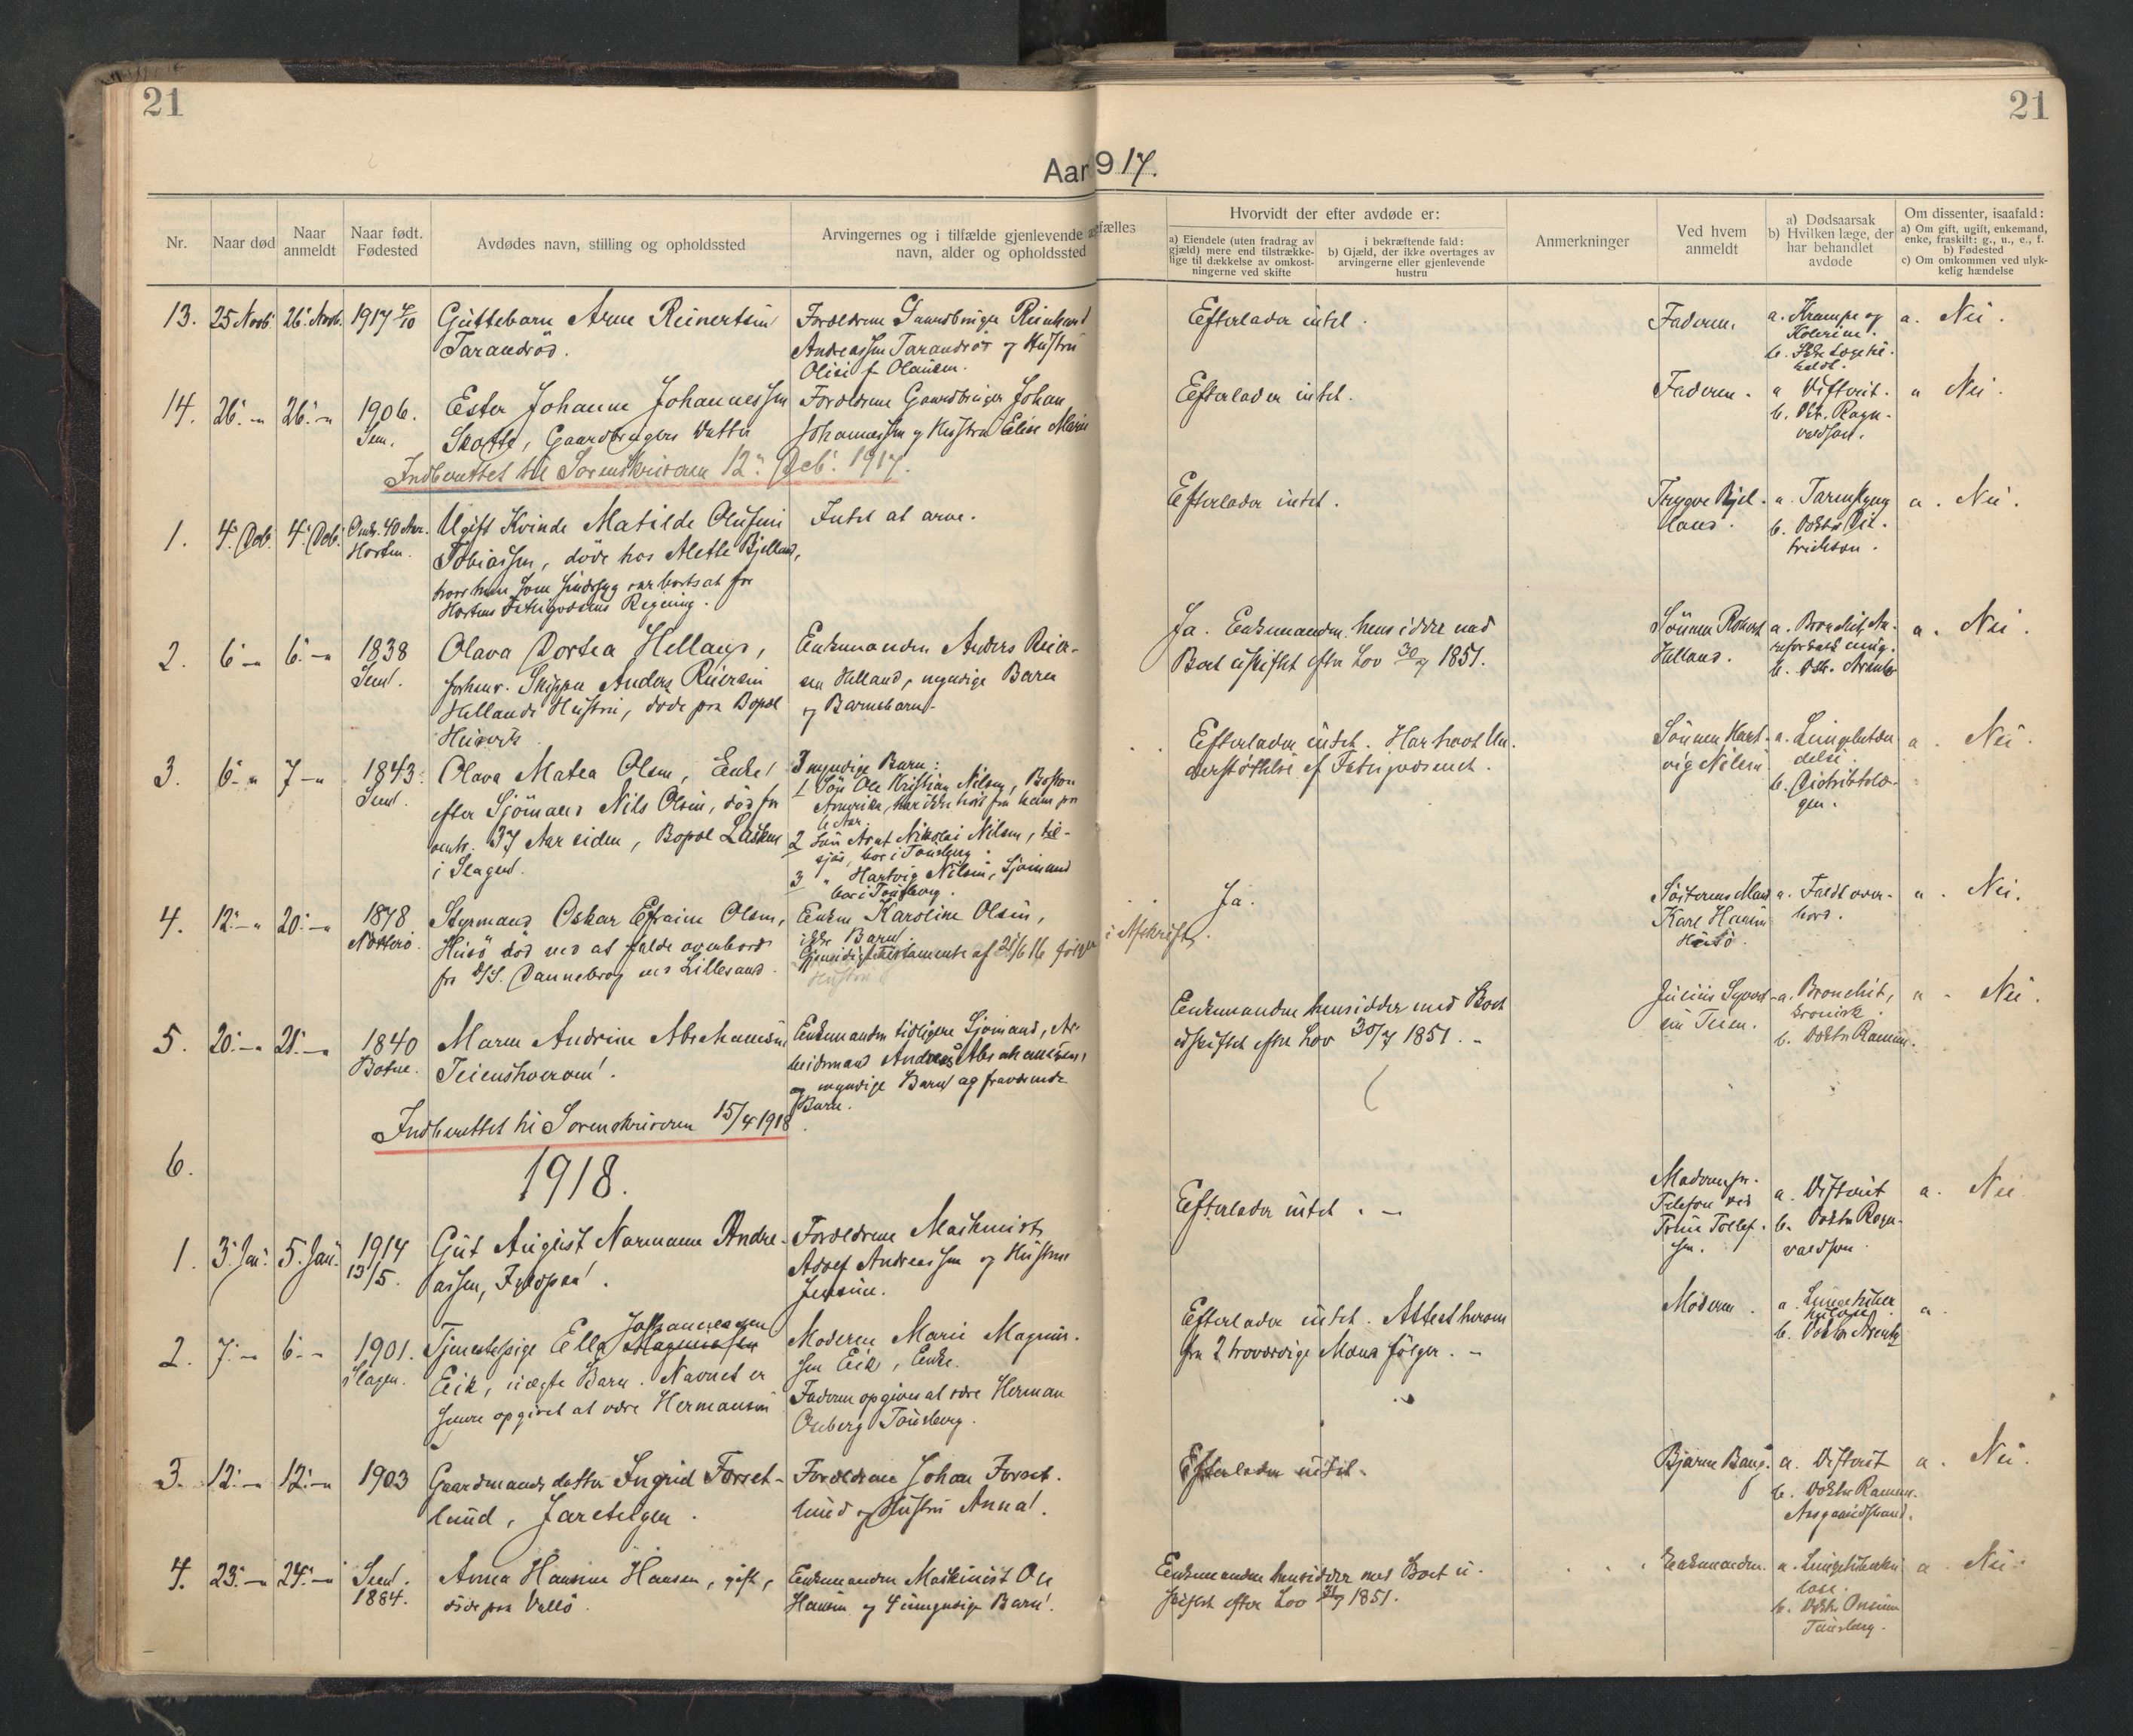 21
21
Aar 1917.
Nr.
Naar død
Naar anmeldt
Naar født. Fødested
Avdødes navn, stilling og opholdssted
Arvingernes og i tilfælde gjenlevende
navn, alder og opholdssted
fælles
Hvorvidt der efter avdøde er:
a) Eiendele (uten fradrag av
gjæld) mere end tilstrække-
lige til dækkelse av omkost-
ningerne ved skifte
i bekræftende fald:
b) Gjæld, der ikke overtages av
arvingerne eller gjenlevende
hustru
Anmerkninger
Ved hvem
anmeldt
a) Dødsaarsak
b) Hvilken læge, der
har behandlet
avdøde
Om dissenter, isaafald:
a) Om gift, ugift, enkemand,
enke, fraskilt: g., u., e., f.
b) Fødested
c) Om omkommen ved ulyk-
kelig hændelse
13. 25 Novb. 26. Novb. 1917
Guttebarn Arne Reinertsen
Tarandrød.
Forældrene Gaardbruger Reinhard
Andreassen Tarandrød og Hustru
Olise f. Olausen.
Efterlader intet.
Faderen.
a. Krampe og
Kolerine.
a. Nei.
14. 26. - 26. - 1906.
Sem.
Ester Johanne Johannessen
Skotte, Gaardbrugers Datter
Forældrene Gaardbruger Johan
Johannessen og Hustru Elise Marie
Efterlader intet.
Faderen.
a. Difterit.
b. Dkt. Ragn-
valdson.
a Nei.
Indberettet til Sorenskriveren 12. Deb. 1917.
1. 4. Deb. 4. Deb. Omtr. 40 Aar.
Horten.
Ugift Kvinde Matilde Olufine
Tobiassen, døde hos Alette Bjelland,
hvor hun som sindssyg var bortsat for
Hortens Fattigvæsens Regning.
Intet at arve.
Efterlader intet.
Trygve Bjel-
land.
b. Doktor Die-
trichson.
a. Nei.
2. 6. - 6. - 1838
Sem.
Olava Dortea Helland,
forhenv. Skipper Anders Reiersen
Hellands Hustru, døde paa Bopæl
Enkemanden Anders Reier-
sen Helland, myndige Barn
og Barnebarn.
Ja. Enkemanden hensidder med
Boet uskiftet efter Lov 30/7 1851.
Sønnen Robert
Helland.
b. Dkt. Arentz
a. Nei.
3. 6. - 7 - 1843.
Sem.
Olava Matea Olsen, Enke
efter Sjömand Nils Olsen, død for
omtr. 37 Aar siden, Bopæl Lasken
i Slagen.
3 myndige Barn:
1 Søn Ole Kristian Nilsen, Boston
Amerika, har ikke hørt fra ham paa
6 Aar.
2 Søn Arnt Nikolai Nilsen, til-
sjøs, bor i Tønsberg
3 " Hartvig Nilsen, Sjømand
bor i Tønsberg.
Efterlader intet. Har havt Un-
derstøttelse af Fattigvæsenet.
Sønnen Hart-
vig Nilsen
a. Lungebetæn
delse.
b. Distriktslæ-
gen.
a Nei.
4. 12. - 20. - 1878
Nøtterø.
Styrmand Oskar Efraim Olsen,
Husø død ved at falde overbord
fra D/S. Dannebrog ved Lillesand.
Enken Karoline Olsen,
ikke Barn.
Gjensidigt Testamente af 28/6 16 følger
i Afskrift.
Ja.
Søsterens Mand
Karl Hansen
Husø.
a. Faldt over-
bord.
a. Nei.
5. 20. - 21. - 1840
Botne.
Maren Andrine Abrahamsen
Teienskoven.
Enkemanden tidligere Sjømand, Ar-
beidsmand Andreas Abrahamsen,
og myndige Barn og fraværende
Barn.
Enkemanden hensidder med Boet
uskiftet efter Lov 30/7 1851.
Julius Syvert-
sen Teien.
a. Bronchit,
kronisk.
b. Doktor Ramm.
a. Nei.
Indberettet til Sorenskriveren 15/4 1918
6.
1918.
1. 3. Jan. 5. Jan. 1914
13/5.
Gut August Normann Andre-
assen,
Forældrene Maskinist
Adolf Andreassen og Hustru
Jensine.
Efterlader intet.
Moderen pr.
Telefon ved
Trine Tollef-
sen.
a. Difterit
b. Doktor Ragn-
valdson
a. Nei
2. 7. - 6. - 1901.
Slagen.
Tjenestepige Ella Magnussen Johannessen
Eik, uægte Barn. Navnet er
senere opgivet at være Hermansen
Moderen Marie Magnus-
sen Eik, Enke.
Faderen opgives at være Herman
Tønsberg.
Efterlader intet. Attest herom
fra 2 troværdige Mænd følger.
Moderen.
a. Lungetuber
kulose.
b. Doktor Arentz
a.
3. 12. - 12. - 1903
Gaardmands datter Ingrid Forset-
lund, Jareteigen.
Forældrene Johan Forset-
lund og Hustru Anna.
Efterlader intet.
Bjarne Bang.
a. Difterit
b. Doktor Ramm.
Aasgaardstrand.
a. Nei.
4. 23. - 24. - Sem.
1884.
Anna Hansine Hansen, gift,
døde paa Vallø.
Enkemanden Maskinist Ole
Hansen og 4 umyndige Barn.
Enkemanden hensidder med Boet u-
skiftet efter Lov 30/7 1851.
Enkemanden.
a. Lungetuberku
lose.
b. Dokt.
Tønsberg.
a Nei.